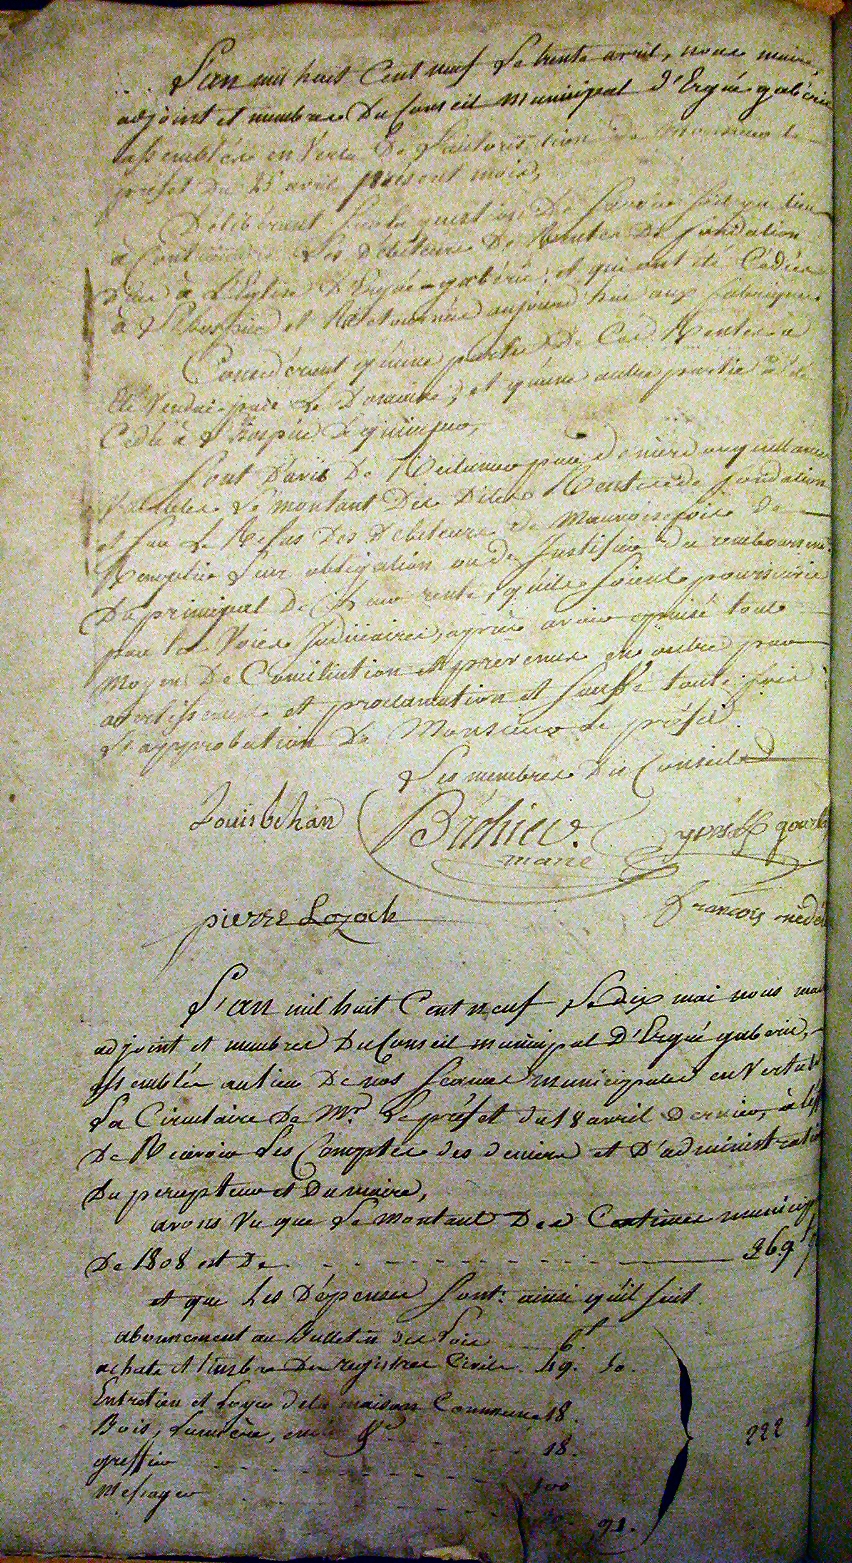 L'an mil huit Cent neuf Le trente avril, nous maire,
adjoint et membres Du Conseil municipal d'Ergué gabéric
assemblés en vertu De L'autorisation de Monsieur le
préfet du 25 avril présent mois,
Délibérant sur la question De savoir s'il y a lieu
à Contraindre Les Débiteurs De Rentes De fondation
dues à L'Eglise D'Ergué-gabéric, et qui ont été Cédées
à L'hospice et Retournées aujourd'hui aux fabriques
Considérant qu'une partie De Ces Rentes a
été vendue par Le Domaine, et qu'une autre partie a été
Cédée à L'hospice De quimper,
Sont D'avis De Réclamer par deniers ou quittances
Valables Le montant Des Dites Rentes de fondation
et sur Le Refus Des Débiteurs de mauvaise foi De
Remplir Leur obligation ou de Justifier du remboursement
Du principal De leur rente, qu'ils soient poursuivis
par les Voies Judiciaires, après avoir épuisé tous
moyens De Conciliation et prévenus en outre par
avertissements et proclamation et sauf toute fois
L'approbation De Monsieur Le préfet.
Les membres Du Conseil
Louis bihan
Brohiec.
maire
yves
pierre Lozach
françois
L'an mil huit Cent neuf Le Dix mai nous
adjoint et membres Du Conseil municipal D'Ergué gaberic,
assemblés au lieu De nos séances municipales en Vertu de
La Circulaire De Mr. Le préfet du 18 avril Dernier, à
De Recevoir Les Comptes des deniers et D'administration
Du percepteur et Du maire,
avons Vu que Le montant Des Centimes
De 1808 est De 269
et que Les Dépenses sont: ainsi qu'il suit.
abonnement au Bulletin des Lois 6f
achats et timbre Des registres Civils. 49. 50.
Entretien et Loyer de la maison Commune 18.
Bois, Lumière, 18.
greffier 100
Messager
91.
222